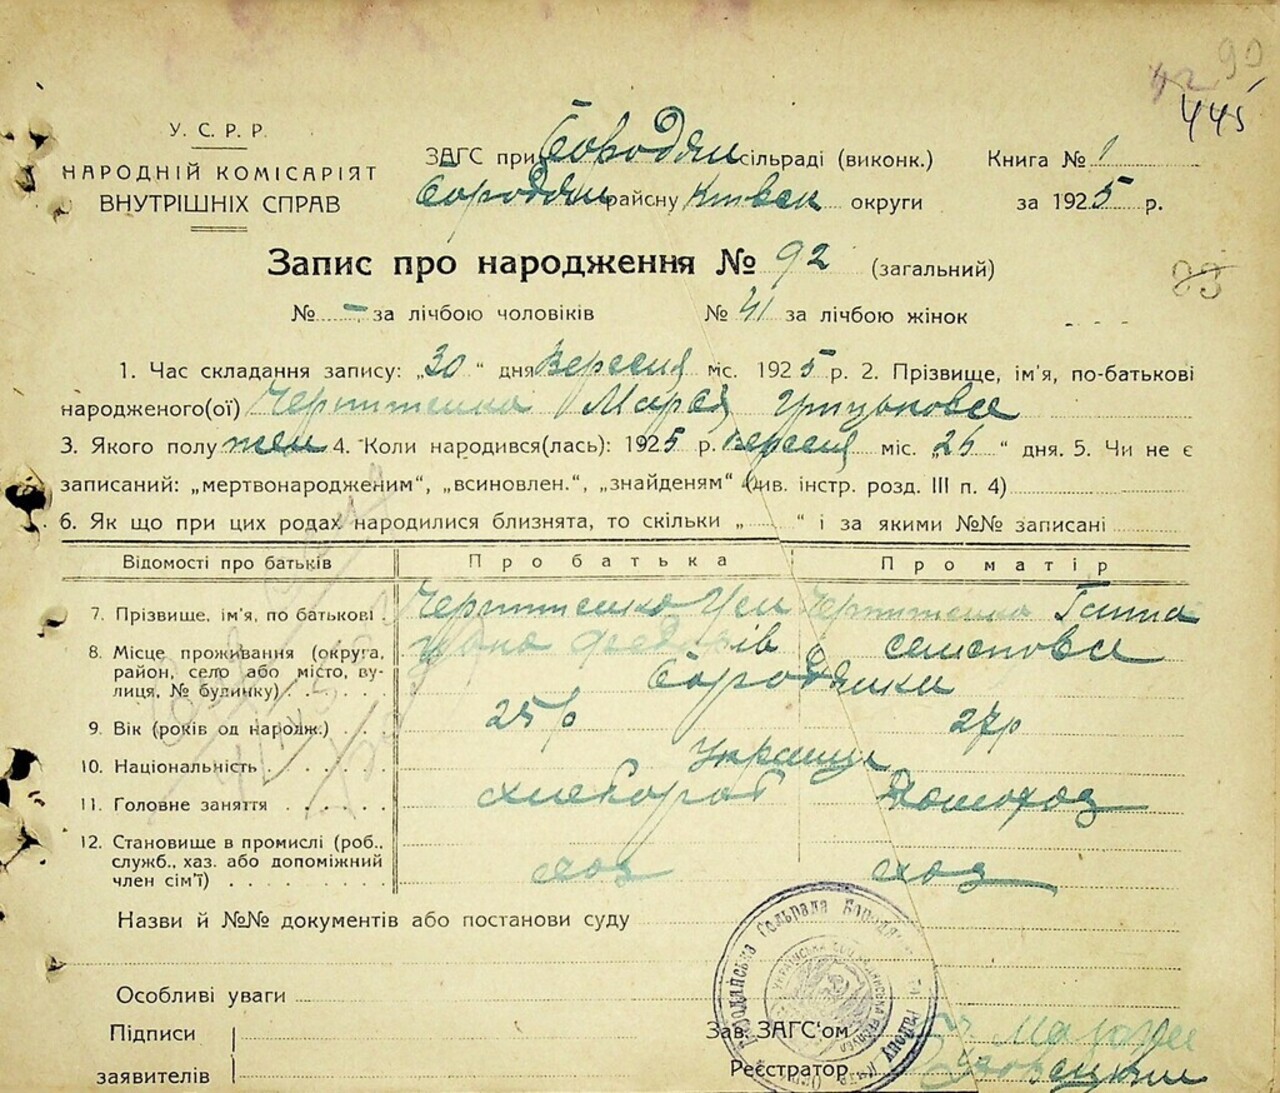 90
42
445
У. С. Р. Р.
НАРОДНІЙ КОМІСАРІЯТ
ВНУТРІШНІХ СПРАВ
ЗАГС при Бородян сільраді (виконк.) Книга № 1
Бородян районy Київськ округи за 1925 р.
Запис про народження № 92 (загальний)
93
№ – за лічбою чоловіків № 41 за лічбою жінок
1. Час складання запису: „30“ дня Вересня міс. 1925 р. 2. Прізвище, ім'я, по-батькові
народженого(ої) Марія
3. Якого полу жен 4. Коли народився(лась): 1925 р. Вересня міс. „26“ дня. 5. Чи не є
записаний: „мертвонародженим“, „всиновлен.“, „знайденям“ (див. інстр. розд. III п. 4)
6. Як що при цих родах народилися близнята, то скільки „ “ і за якими №№ записані
Відомості про батьків Про батька Про матір
7. Прізвище, ім'я, по батькові Ганна
8. Місце проживання (округа, район, село або місто, вулиця, № будинку) Федорів Семеновна
Бородянки
9. Вік (років од народж.) 25 р 27р
10. Національність Украинці
11. Головне заняття хлебороб Домохоз
12. Становище в промислі (роб., служб., хаз. або допоміжний член сім'ї) хоз хоз
Назви й №№ документів або постанови суду
Особливі уваги
Підписи
заявителів
Зав. ЗАГС'ом
Реєстратор